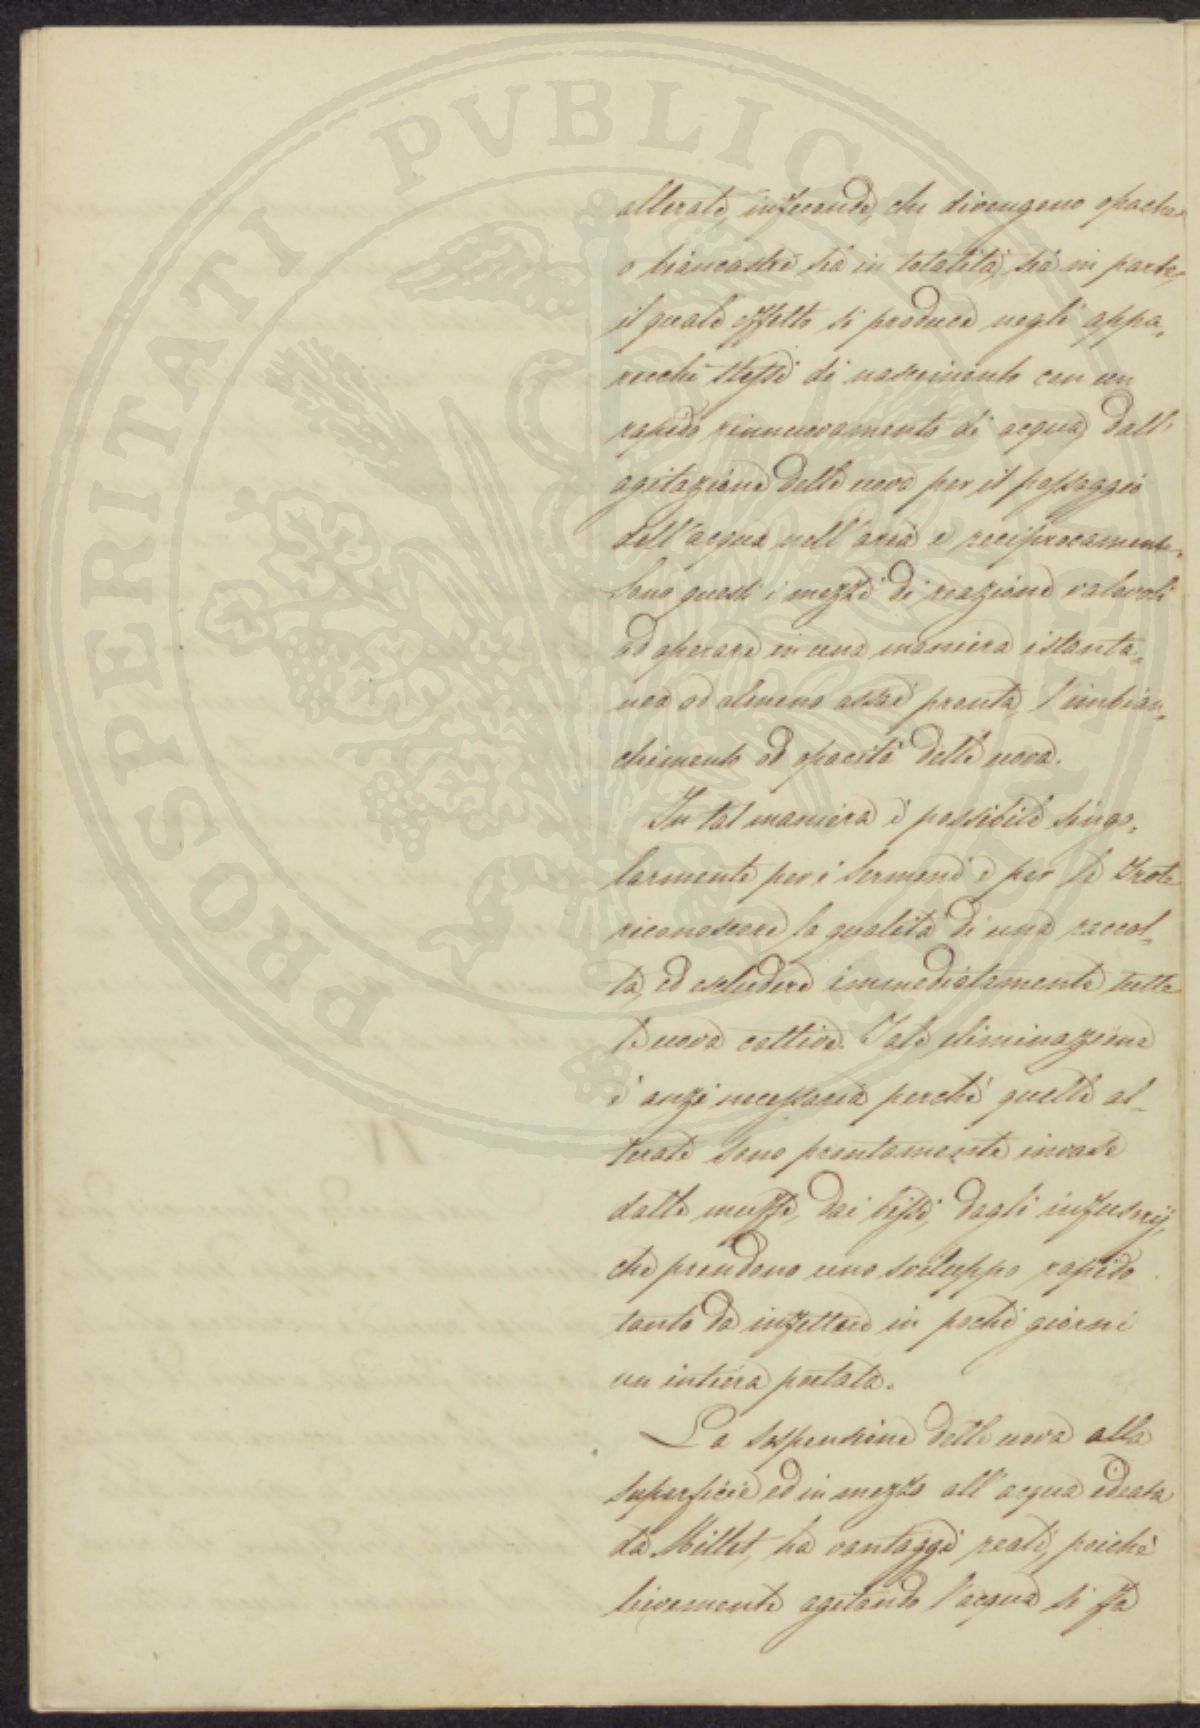 PROSPERITATI PVBLICAE
alterate, infeconde, che divengono opache
o biancastre sia in totalità, sia in parte,
il quale effetto si produce negli appa-
recchi stessi di nascimento con un
rapido rinnuovamento di acqua, dall'
agitazione delle uova per il passaggio
dell'acqua nell'aria e reciprocamente.
Sono questi i mezzi di reazione valevoli
ad operare in una maniera istanta-
nea od almeno assai pronta, l'imbian-
chimento od opacità delle uova.
In tal maniera è possibile singo-
larmente per i Sermoni e per le Trote
riconoscere la qualità di una raccol-
ta, ed escludere immediatamente tutte
le uova cattive. Tale eliminazione
è anzi necessaria perchè quelle al-
terate sono prontamente invase
dalle muffe, dai bissi, dagli infusorj,
che prendono uno sviluppo rapido
tanto da infettare in pochi giorni
un intiera portata.
La sospensione delle uova alla
superficie ed in mezzo all'acqua ideata
da Millet, ha vantaggi reali, poichè
lievemente agitando l'acqua si fa